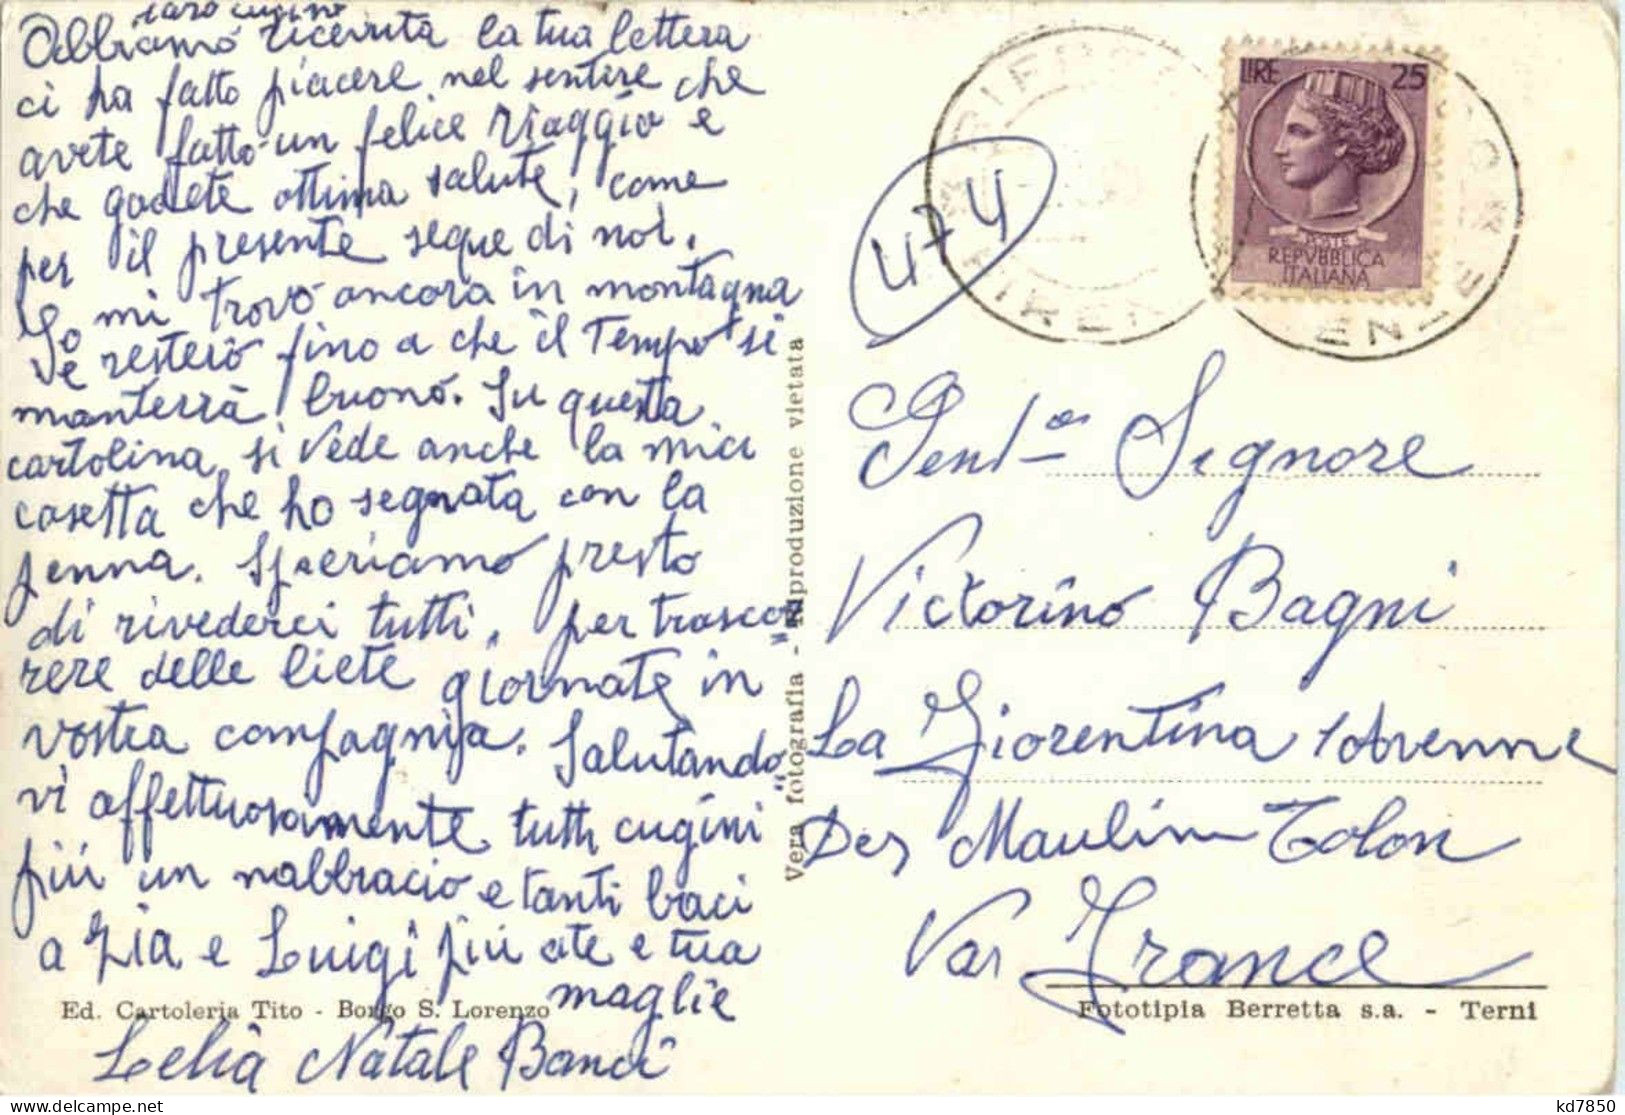 caro cugino
Abbiamo ricevuta la tua lettera
ci ha fatto piacere nel sentire che
avete fatto un felice viaggio e
che godete ottima salute, come
per il presente segue di noi.
Io mi trovo ancora in montagna
ve resterò fino a che il Tempo si
manterrà buono. Su questa
cartolina si vede anche la mia
casetta che ho segnata con la
penna. Speriamo presto
di rivederci tutti, per trascor=
rere delle liete giornate in
vostra compagnia. Salutando
vi affettuosamente tutti cugini
più un nabbracio e tanti baci
a zia e Luigi più ate e tua
maglie
Ed. Cartoleria Tito - Borgo S. Lorenzo
Lelia Natale Banci
Vera fotografia - Riproduzione vietata
LIRE 25
POSTE
REPVBBLICA
ITALIANA
474
Gent. Signore
Victorino Bagni
La Fiorentina 1 Avenue
Des Maulin Tolon
Var France
Fototipia Berretta s.a. - Terni
kd7850